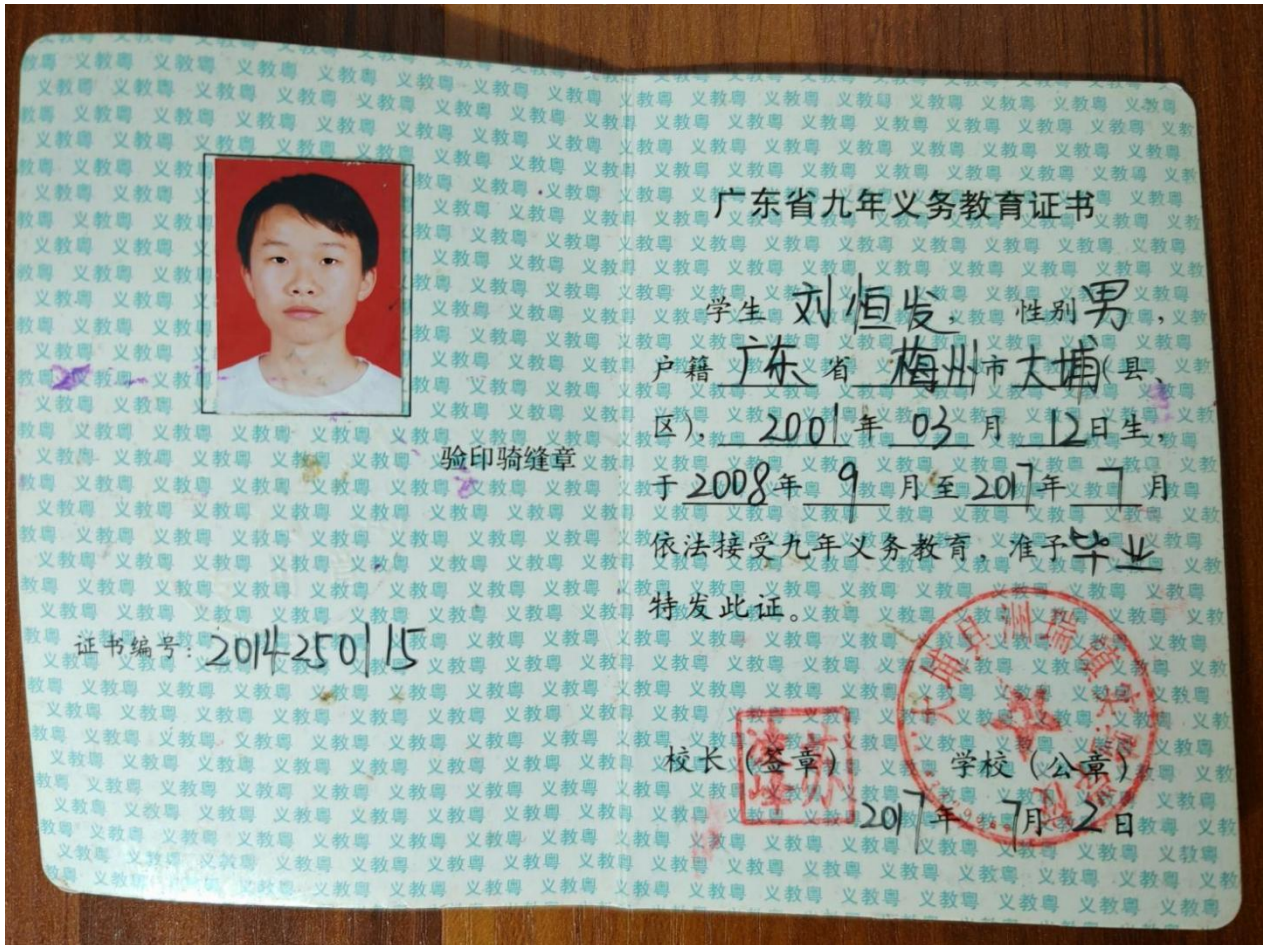 验印骑缝章
证书编号：2014250115
广东省九年义务教育证书
学生 刘恒发，性别 男，
户籍 广东 省 梅州 市 大埔（县、
区），2001 年 03 月 12 日生，
于 2008 年 9 月至 2017 年 7 月
依法接受九年义务教育，准予 毕业
特发此证。
校长（签章） 学校（公章）
2017 年 7 月 2 日